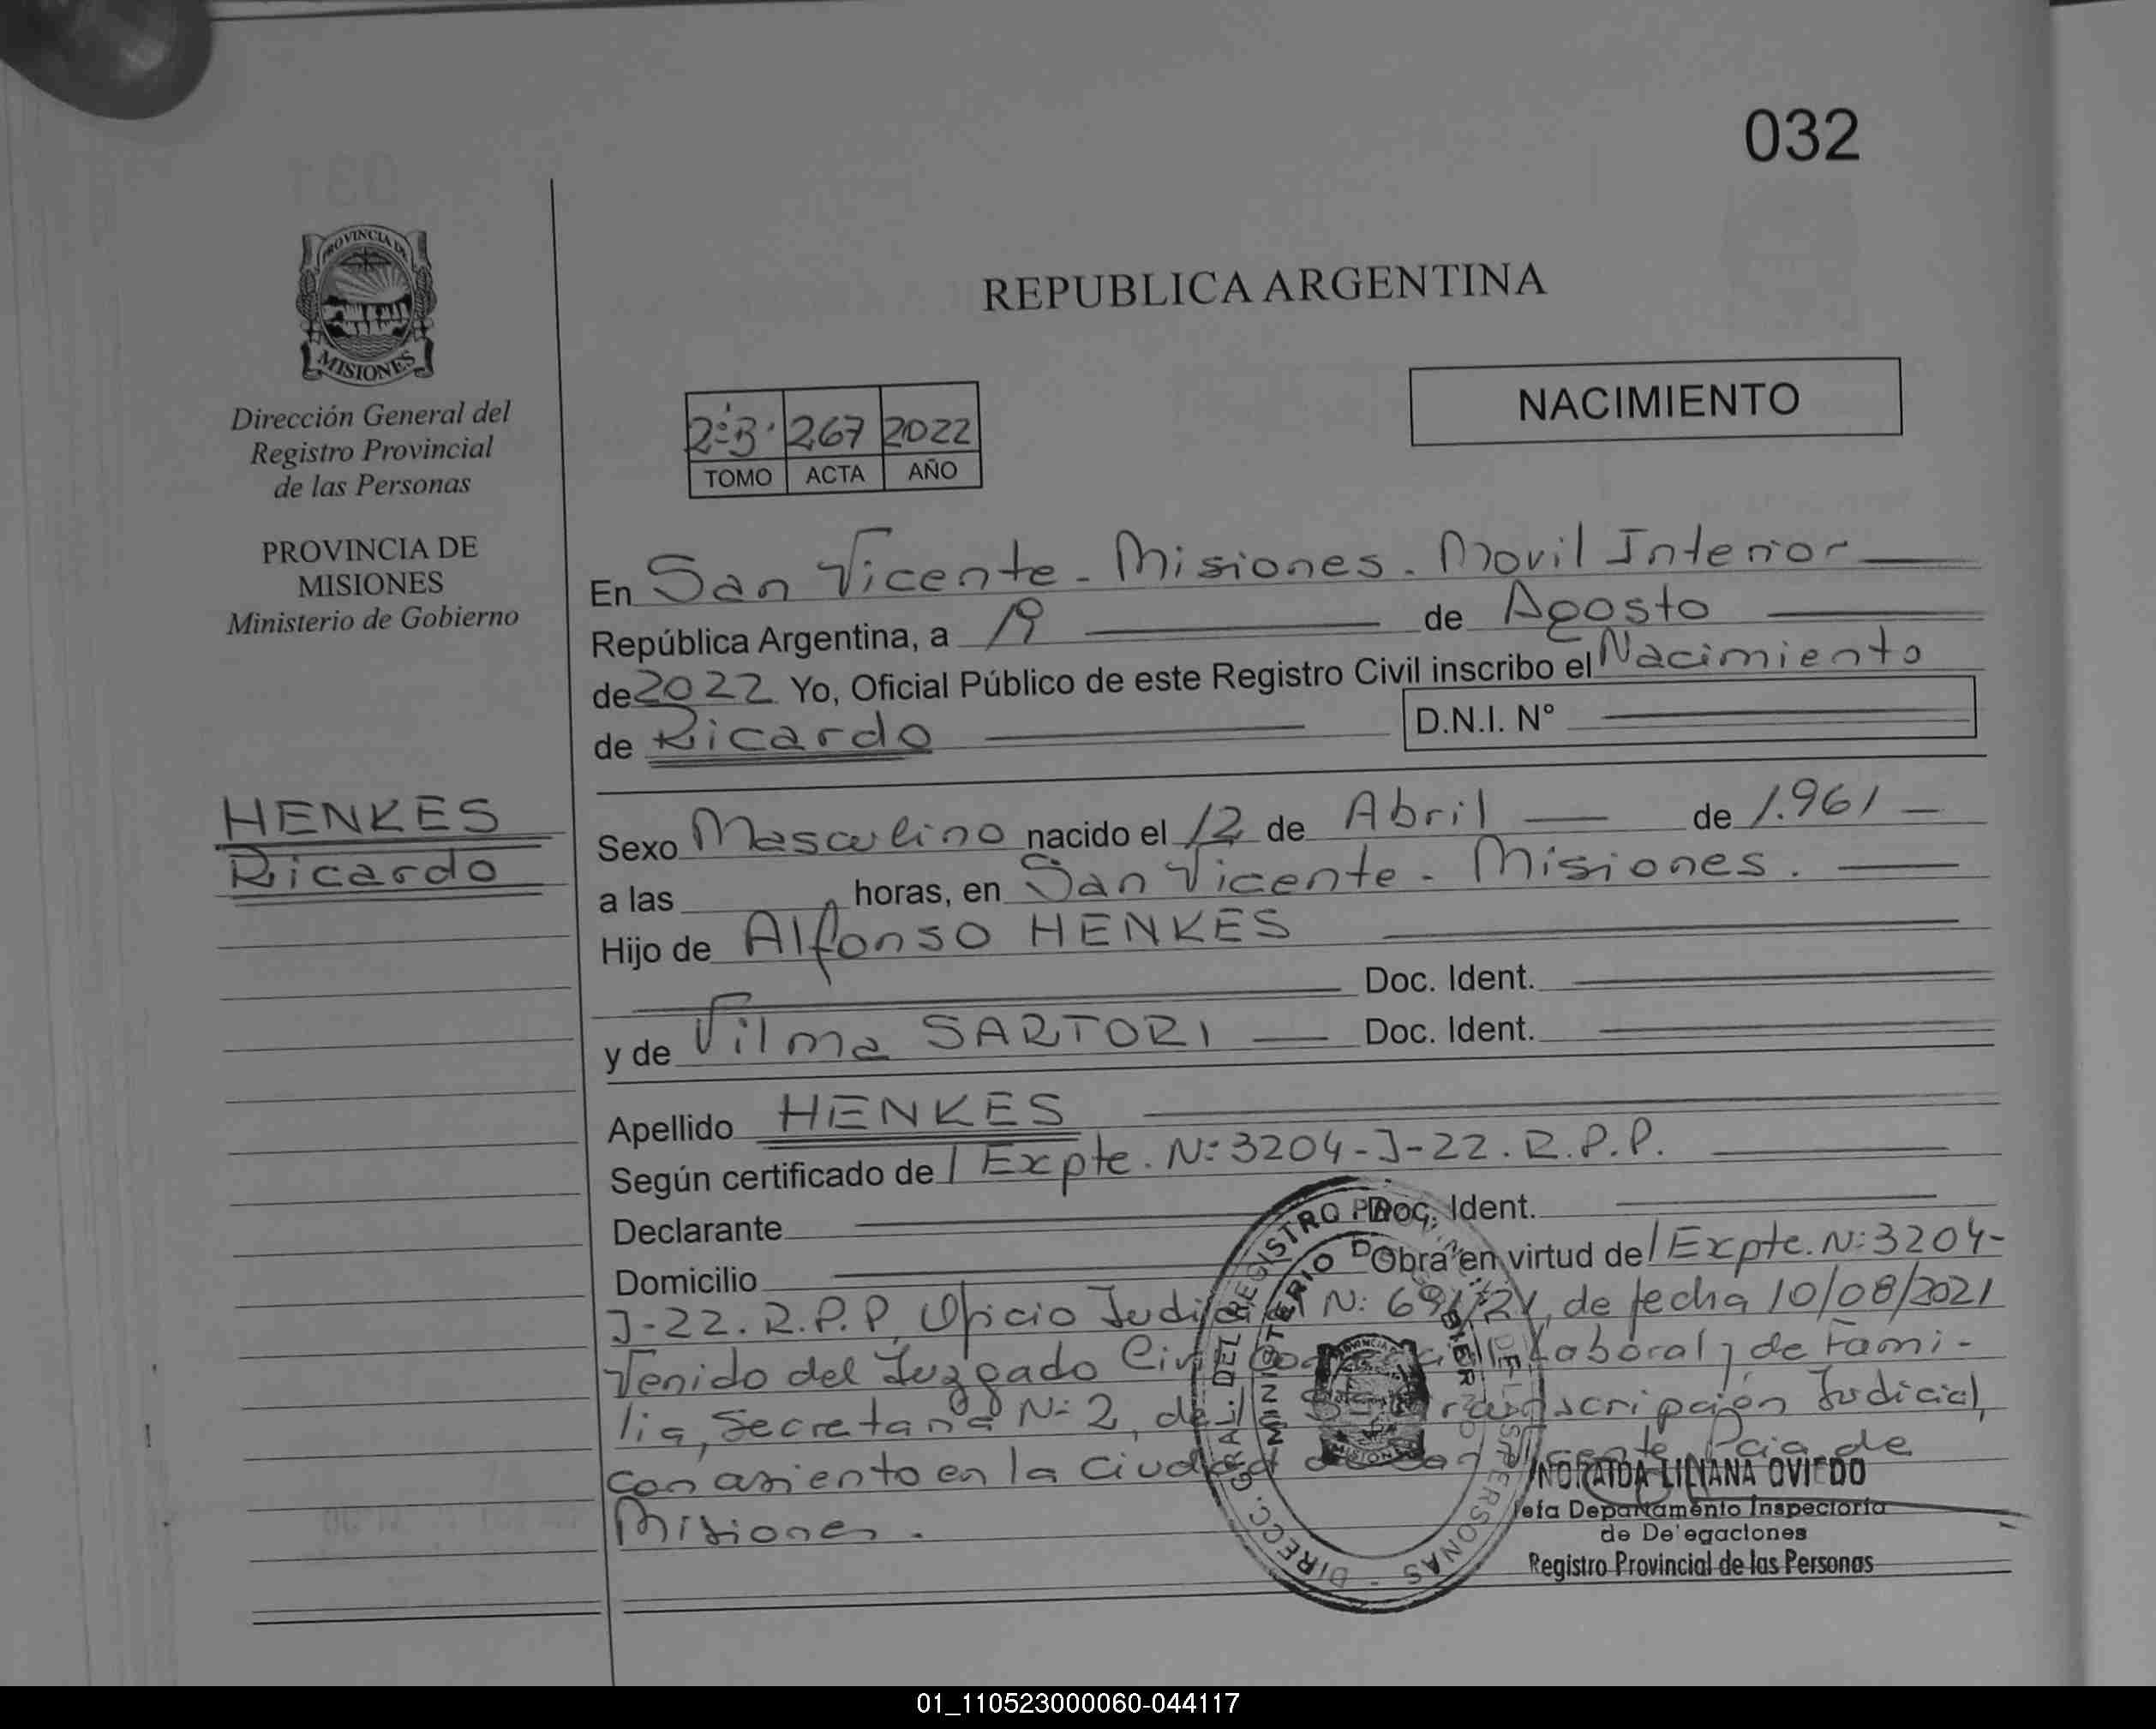 032
PROVINCIA DE
MISIONES
Dirección General del
Registro Provincial
de las Personas
PROVINCIA DE
MISIONES
Ministerio de Gobierno
HENKES
Ricardo
REPUBLICA ARGENTINA
NACIMIENTO
2º"B" 267 2022
TOMO ACTA AÑO
En San Vicente - Misiones. Movil Interior
República Argentina, a 19 de Agosto
de 2022 Yo, Oficial Público de este Registro Civil inscribo el Nacimiento
de Ricardo D.N.I. Nº
Sexo Masculino nacido el 12 de Abril de 1.961
a las horas, en San Vicente - Misiones.
Hijo de Alfonso HENKES
Doc. Ident.
y de Vilma SARTORI Doc. Ident.
Apellido HENKES
Según certificado de / Expte. Nº 3204-J-22. R.P.P.
Declarante Doc. Ident.
Domicilio Obra en virtud de / Expte. Nº 3204-
J-22. R.P.P, Oficio Judicial Nº de fecha 10/08/2021
Venido del Juzgado Civil Laboral y de Fami-
lia, Secretaría Nº 2, de Judicial,
con asiento en la ciudad de San Vicente, Pcia. de
Misiones.
DIRECC. GRAL. DEL REGISTRO DE LAS PERSONAS
MINISTERIO DE GOBIERNO
LILIANA OVIEDO
Jefa Departamento Inspectoría
de Delegaciones
Registro Provincial de las Personas
01_110523000060-044117